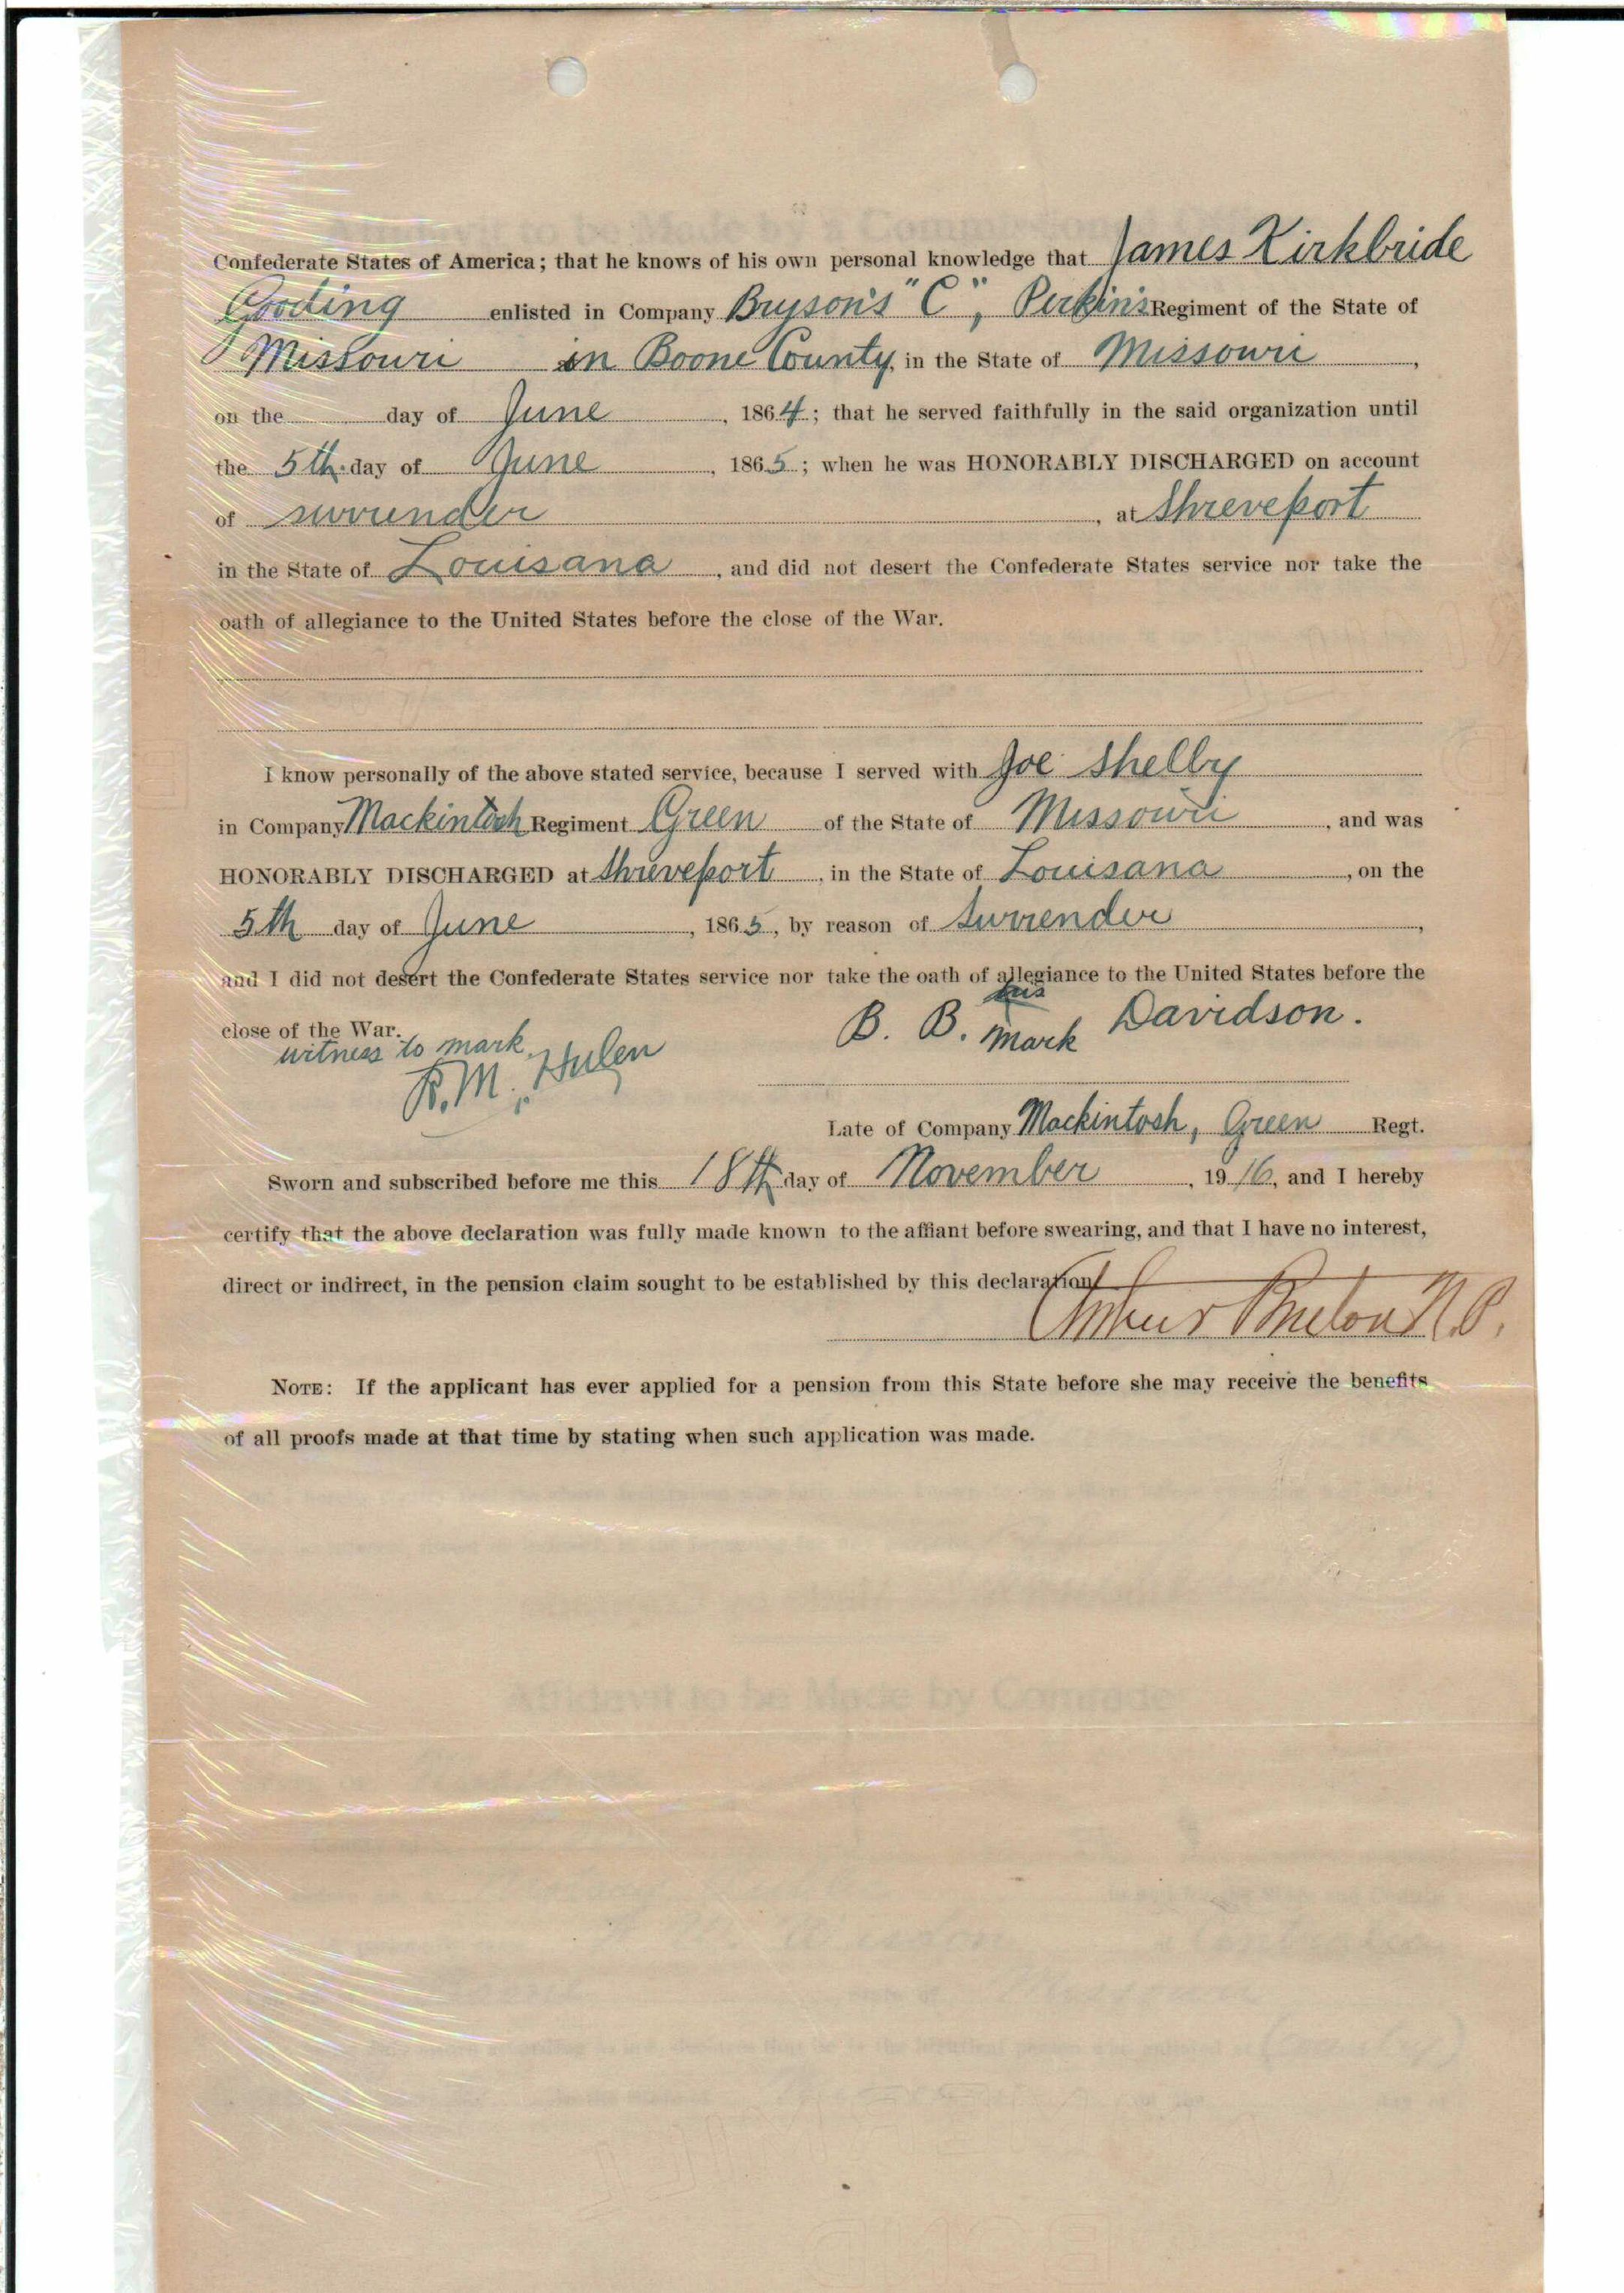 Confederate States of America; that he knows of his own personal knowledge that James Kirkbride
Gooding enlisted in Company Bryson's "C", Perkin's Regiment of the State of
Missouri in Boone County, in the State of Missouri,
on the day of June, 1864; that he served faithfully in the said organization until
the 5th day of June, 1865; when he was HONORABLY DISCHARGED on account
of surrender, at Shreveport
in the State of Louisana, and did not desert the Confederate States service nor take the
oath of allegiance to the United States before the close of the War.
I know personally of the above stated service, because I served with Joe Shelby
in Company Mackintosh Regiment Green of the State of Missouri, and was
HONORABLY DISCHARGED at Shreveport, in the State of Louisana, on the
5th day of June, 1865, by reason of surrender,
and I did not desert the Confederate States service nor take the oath of allegiance to the United States before the
close of the War.
his
B. B. mark Davidson.
witness to mark
R.M. Hulen
Late of Company Mackintosh, Green Regt.
Sworn and subscribed before me this 18th day of November, 1916, and I hereby
certify that the above declaration was fully made known to the affiant before swearing, and that I have no interest,
direct or indirect, in the pension claim sought to be established by this declaration
N.P.
NOTE: If the applicant has ever applied for a pension from this State before she may receive the benefits
of all proofs made at that time by stating when such application was made.